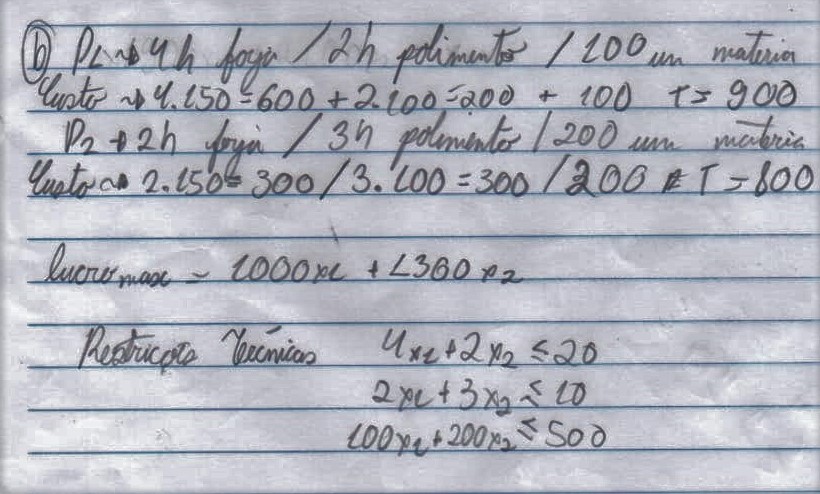 b) P1 → 4h forja / 2h polimento / 100 un materia
Custo → 4.150=600 + 2.100=200 + 100 T= 900
P2 → 2h forja / 3h polimento / 200 un materia
Custo → 2.150=300 / 3.100=300 / 200 T = 800
lucro max = 1000x1 + 1300x2
Restrições Técnicas 4x1+2x2 ≤ 20
2x1+3x2 ≤ 10
100x1+200x2 ≤ 500